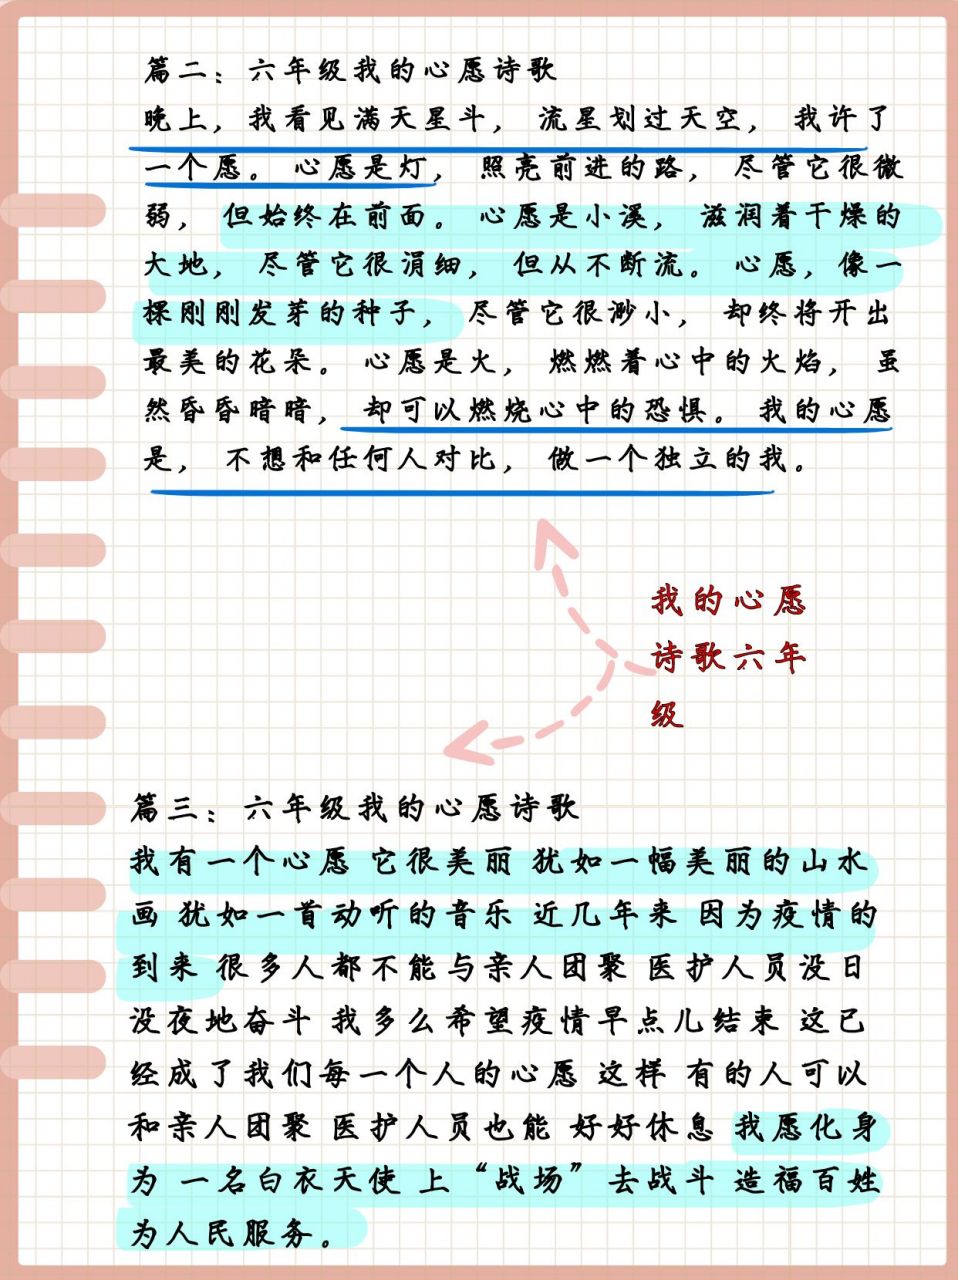 篇二：六年级我的心愿诗歌
晚上，我看见满天星斗，流星划过天空，我许了
一个愿。心愿是灯，照亮前进的路，尽管它很微
弱，但始终在前面。心愿是小溪，滋润着干燥的
大地，尽管它很涓细，但从不断流。心愿，像一
棵刚刚发芽的种子，尽管它很渺小，却终将开出
最美的花朵。心愿是火，燃燃着心中的火焰，虽
然昏昏暗暗，却可以燃烧心中的恐惧。我的心愿
是，不想和任何人对比，做一个独立的我。
我的心愿
诗歌六年
级
篇三：六年级我的心愿诗歌
我有一个心愿 它很美丽 犹如一幅美丽的山水
画 犹如一首动听的音乐 近几年来 因为疫情的
到来 很多人都不能与亲人团聚 医护人员没日
没夜地奋斗 我多么希望疫情早点儿结束 这已
经成了我们每一个人的心愿 这样 有的人可以
和亲人团聚 医护人员也能 好好休息 我愿化身
为 一名白衣天使 上“战场” 去战斗 造福百姓
为人民服务。